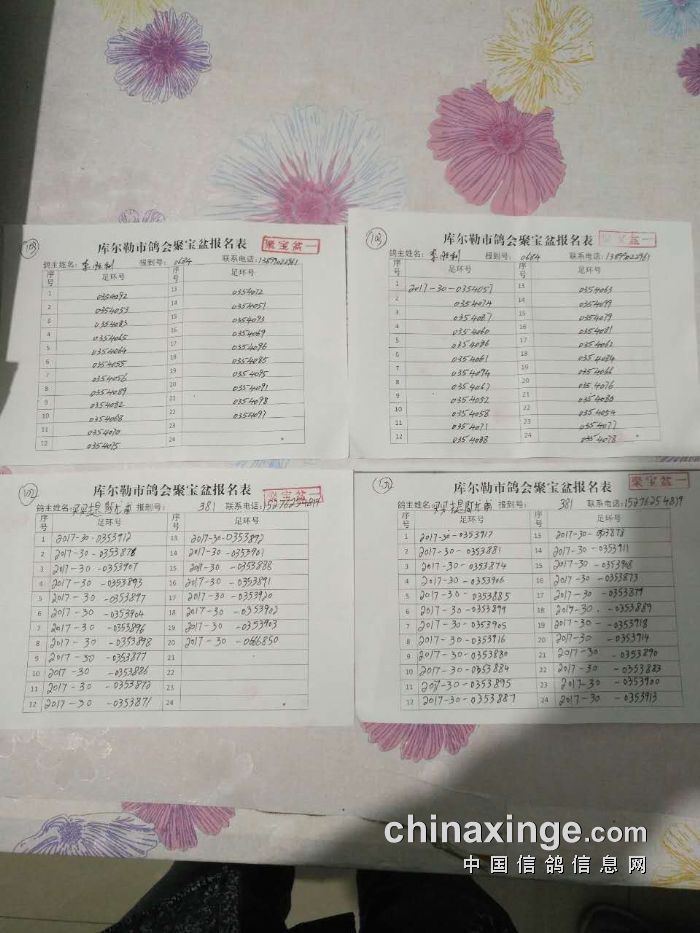 103
库尔勒市鸽会聚宝盆报名表
聚宝盆一
鸽主姓名: 报到号: 0684 联系电话:
序号 足环号 序号 足环号
1 0354092 13 0354072
2 0354053 14 0354051
3 0354083 15 0354093
4 0354065 16 0354069
5 0354064 17 0354096
6 0354055 18 0354085
7 0354056 19 0354095
8 0354089 20 0354091
9 0354082 21 0354098
10 0354068 22 0354097
11 0354070 23
12 0354075 24
库尔勒市鸽会聚宝盆报名表
聚宝盆一
鸽主姓名: 报到号: 0684 联系电话:
序号 足环号 序号 足环号
1 2017-30-0354057 13 0354063
2 0354074 14 0354099
3 0354087 15 0354079
4 0354060 16 0354081
5 0354086 17 0354061
6 0354061 18 0354084
7 0354094 19 0354066
8 0354067 20 0354076
9 0354052 21 0354080
10 0354058 22 0354054
11 0354071 23 0354077
12 0354088 24 0354078
102
库尔勒市鸽会聚宝盆报名表
聚宝盆一
鸽主姓名: 报到号: 381 联系电话: 15276254819
序号 足环号 序号 足环号
1 2017-30-0353912 13 2017-30-0353892
2 2017-30-0353876 14 2017-30-0353901
3 2017-30-0353907 15 2017-30-0353888
4 2017-30-0353893 16 2017-30-0353891
5 2017-30-0353897 17 2017-30-0353920
6 2017-30-0353904 18 2017-30-0353902
7 2017-30-0353896 19 2017-30-0353903
8 2017-30-0353898 20 2017-30-0666850
9 2017-30-0353877 21
10 2017-30-0353886 22
11 2017-30-0353872 23
12 2017-30-0353871 24
库尔勒市鸽会聚宝盆报名表
聚宝盆一
鸽主姓名: 报到号: 381 联系电话: 15276254819
序号 足环号 序号 足环号
1 2017-30-0353917 13 2017-30-0353878
2 2017-30-0353881 14 2017-30-0353911
3 2017-30-0353874 15 2017-30-0353908
4 2017-30-0353906 16 2017-30-0353873
5 2017-30-0353885 17 2017-30-0353879
6 2017-30-0353899 18 2017-30-0353889
7 2017-30-0353905 19 2017-30-0353918
8 2017-30-0353916 20 2017-30-0353914
9 2017-30-0353880 21 2017-30-0353890
10 2017-30-0353884 22 2017-30-0353883
11 2017-30-0353895 23 2017-30-0353900
12 2017-30-0353887 24 2017-30-0353913
chinaxinge.com
中国信鸽信息网